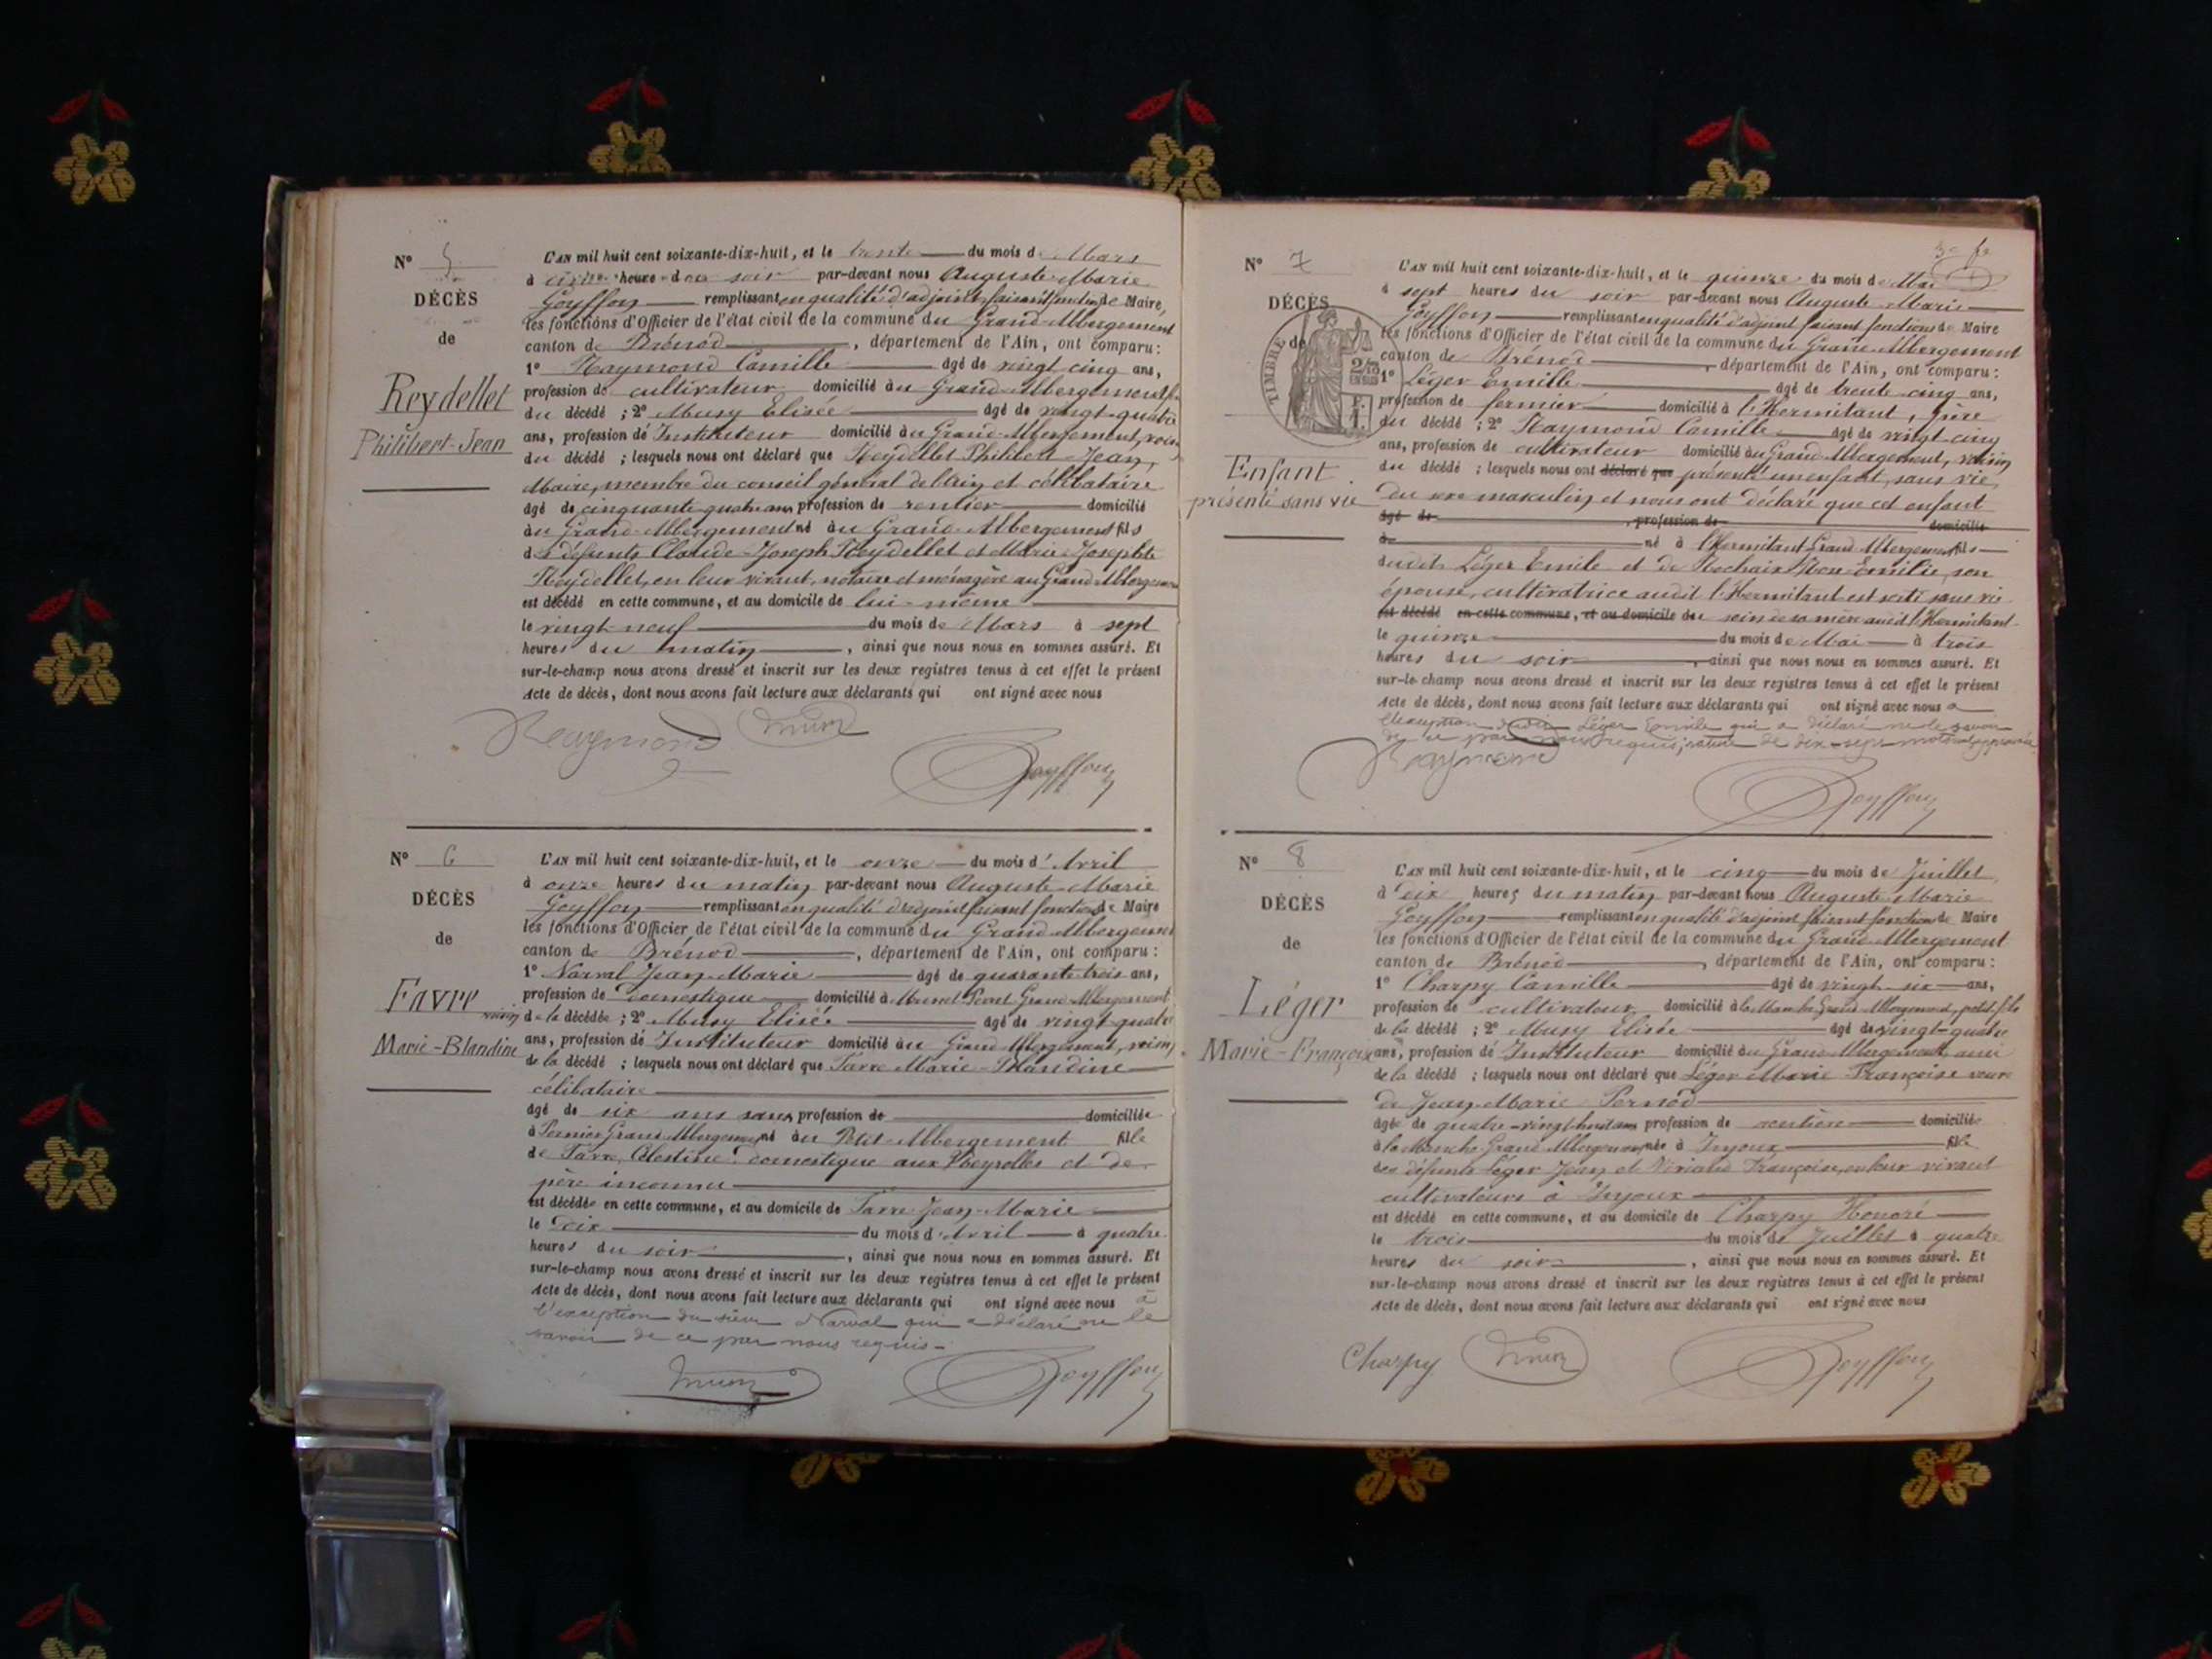 N° 5
DÉCÈS
de
Reydellet
Philibert-Jean
L'AN mil huit cent soixante-dix-huit, et le trente du mois de Mars
à heure du soir par-devant nous Auguste-Marie
Goyffon remplissant en qualité d'adjoint faisant fonction de Maire,
les fonctions d'Officier de l'état civil de la commune du Grand-Abergement
canton de Brénod, département de l'Ain, ont comparu :
1° Raymond Camille âgé de vingt cinq ans,
profession de cultivateur domicilié au Grand-Abergement
du décédé ; 2° Musy Elisée âgé de vingt-quatre
ans, profession de Instituteur domicilié au Grand-Abergement, voisin
du décédé ; lesquels nous ont déclaré que Reydellet Philibert-Jean,
Maire, membre du conseil général de l'Ain et célibataire
âgé de cinquante-quatre ans profession de rentier domicilié
au Grand-Abergement né au Grand-Abergement fils
des défunts Claude-Joseph Reydellet et Marie-Josephte
Reydellet, en leur vivant, notaire et ménagère au Grand-Abergement
est décédé en cette commune, et au domicile de lui-même
le vingt-neuf du mois de Mars à sept
heures du matin, ainsi que nous nous en sommes assuré. Et
sur-le-champ nous avons dressé et inscrit sur les deux registres tenus à cet effet le présent
Acte de décès, dont nous avons fait lecture aux déclarants qui ont signé avec nous
Raymond Goyffon
N° 6
DÉCÈS
de
Favre
Marie-Blandine
L'AN mil huit cent soixante-dix-huit, et le onze du mois d'Avril
à onze heures du matin par-devant nous Auguste-Marie
Goyffon remplissant en qualité d'adjoint faisant fonction de Maire
les fonctions d'Officier de l'état civil de la commune du Grand-Abergement
canton de Brénod, département de l'Ain, ont comparu :
1° Narval Jean-Marie âgé de quarante-trois ans,
profession de domestique domicilié à Grand-Abergement
voisin de la décédée ; 2° Musy Elisée âgé de vingt-quatre
ans, profession de Instituteur domicilié au Grand-Abergement, voisin
de la décédé ; lesquels nous ont déclaré que Favre Marie-Blandine
célibataire
âgé de six ans sans profession de domiciliée
à Grand-Abergement né au Petit-Abergement fille
de Favre Célestine domestique aux et de
père inconnu
est décédée en cette commune, et au domicile de Favre Jean-Marie
le dix du mois d'Avril à quatre
heures du soir, ainsi que nous nous en sommes assuré. Et
sur-le-champ nous avons dressé et inscrit sur les deux registres tenus à cet effet le présent
Acte de décès, dont nous avons fait lecture aux déclarants qui ont signé avec nous à
l'exception du sieur Narval qui a déclaré ne le
savoir de ce par nous requis.
Goyffon
N° 7
DÉCÈS
de
TIMBRE
Enfant
présenté sans vie
L'AN mil huit cent soixante-dix-huit, et le quinze du mois de Mai
à sept heures du soir par-devant nous Auguste-Marie
Goyffon remplissant en qualité d'adjoint faisant fonctions de Maire
les fonctions d'Officier de l'état civil de la commune du Grand-Abergement
canton de Brénod, département de l'Ain, ont comparu :
1° Léger Emille âgé de trente-cinq ans,
profession de fermier domicilié à l'Hermitant, père
du décédé ; 2° Raymond Camille âgé de vingt-cinq
ans, profession de cultivateur domicilié au Grand-Abergement, voisin
du décédé ; lesquels nous ont déclaré que présenté un enfant, sans vie,
du sexe masculin et nous ont déclaré que cet enfant
âgé de profession de domicilié
à né à l'Hermitant Grand-Abergement fils
dudit Léger Emile et de Emilie, son
épouse, cultivatrice audit l'Hermitant est sorti sans vie
est décédé en cette commune, et au domicile du sein de sa mère audit l'Hermitant
le quinze du mois de Mai à trois
heures du soir, ainsi que nous nous en sommes assuré. Et
sur-le-champ nous avons dressé et inscrit sur les deux registres tenus à cet effet le présent
Acte de décès, dont nous avons fait lecture aux déclarants qui ont signé avec nous à
l'exception Léger Emile qui a déclaré ne le savoir
de ce par nous requis, de dix-sept mots
Raymond
Goyffon
N° 8
DÉCÈS
de
Léger
Marie-Françoise
L'AN mil huit cent soixante-dix-huit, et le cinq du mois de Juillet
à dix heures du matin par-devant nous Auguste-Marie
Goyffon remplissant en qualité d'adjoint faisant fonction de Maire
les fonctions d'Officier de l'état civil de la commune du Grand-Abergement
canton de Brénod, département de l'Ain, ont comparu :
1° Charpy Camille âgé de vingt-six ans,
profession de cultivateur domicilié à la Manche Grand-Abergement, petit-fils
de la décédé ; 2° Musy Elisée âgé de vingt-quatre
ans, profession de Instituteur domicilié au Grand-Abergement, ami
de la décédé ; lesquels nous ont déclaré que Léger Marie-Françoise veuve
de Jean-Marie Pernod
âgée de quatre-vingt-huit ans profession de rentière domiciliée
à la Manche Grand-Abergement née à Injoux fille
des défunts Léger Jean et Françoise, en leur vivant
cultivateurs à Injoux
est décédé en cette commune, et au domicile de Charpy Honoré
le trois du mois de Juillet à quatre
heures du soir, ainsi que nous nous en sommes assuré. Et
sur-le-champ nous avons dressé et inscrit sur les deux registres tenus à cet effet le présent
Acte de décès, dont nous avons fait lecture aux déclarants qui ont signé avec nous
Charpy Goyffon